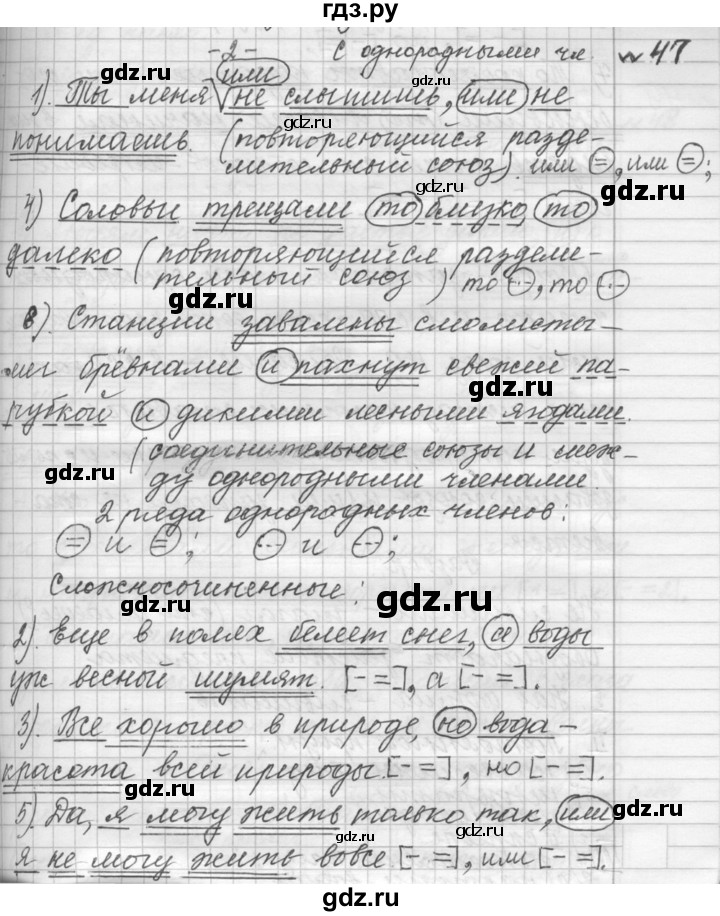 гдз.ру
-2- с однородными чл. №47
или
1). Ты меня не слышишь, или не
понимаешь. (повторяющийся разде-
лительный союз). или (=), или (=);
4) Соловьи трещали то близко то
далеко (повторяющийся раздели-
тельный союз) то (-·-), то (-·-)
8). Станции завалены смолисты-
ми брёвнами и пахнут свежей па-
рубкой и дикими лесными ягодами.
(соединительные союзы и меж-
ду однородными членами.
2 ряда однорадных членов:
(=) и (=); (-·-) и (-·-);
Сложносочиненные:
2). Еще в полях белеет снег, а воды
уж весной шумят. [- =], а [- =].
3). Все хорошо в природе, но вода-
красота всей природы. [- =], но [- =].
5). Да, я могу жить только так, или
я не могу жить вовсе. [- =], или [- =].
gdz.ru
gdz.ru
gdz.ru
gdz.ru
gdz.ru
gdz.ru
gdz.ru
gdz.ru
gdz.ru
gdz.ru
gdz.ru
gdz.ru
gdz.ru
gdz.ru